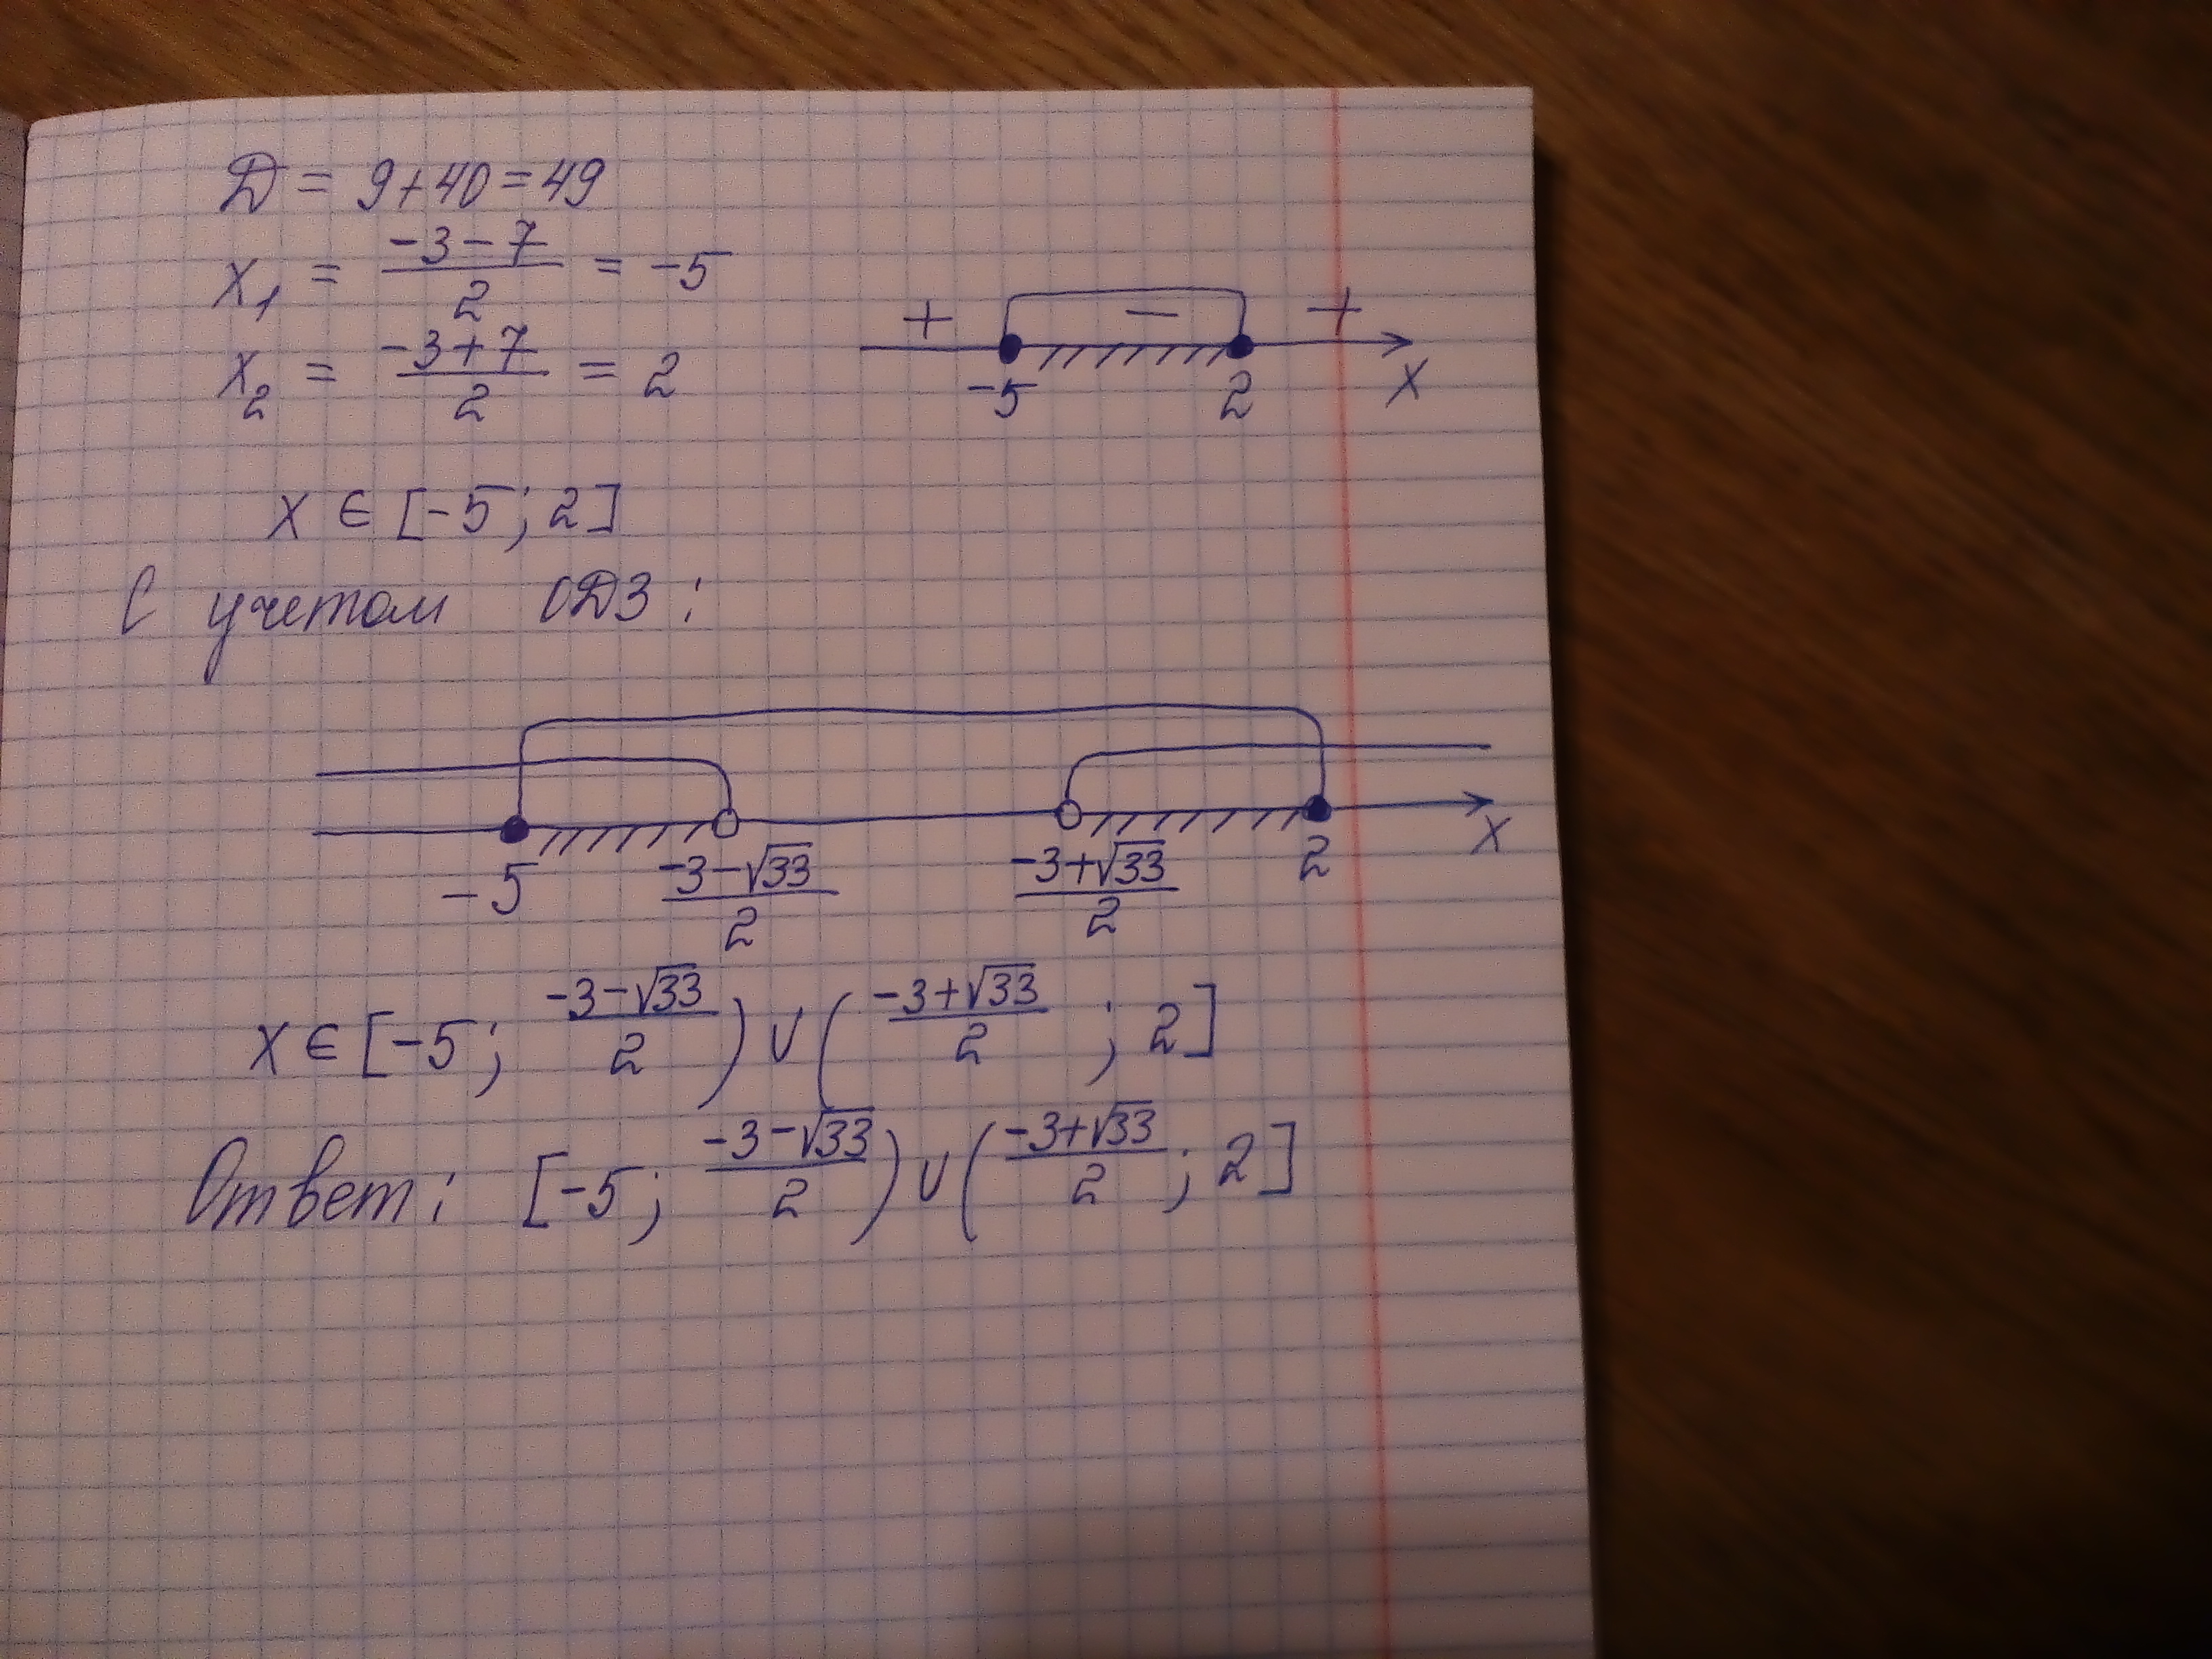 Д = 9+40=49
x₁ = (-3-7)/2 = -5
+ − +
-5 2 x
x₂ = (-3+7)/2 = 2
x ∈ [-5; 2]
С учетом ОДЗ:
-5 (-3-√33)/2 (-3+√33)/2 2 x
x ∈ [-5; (-3-√33)/2) ∪ ((-3+√33)/2; 2]
Ответ: [-5; (-3-√33)/2) ∪ ((-3+√33)/2; 2]